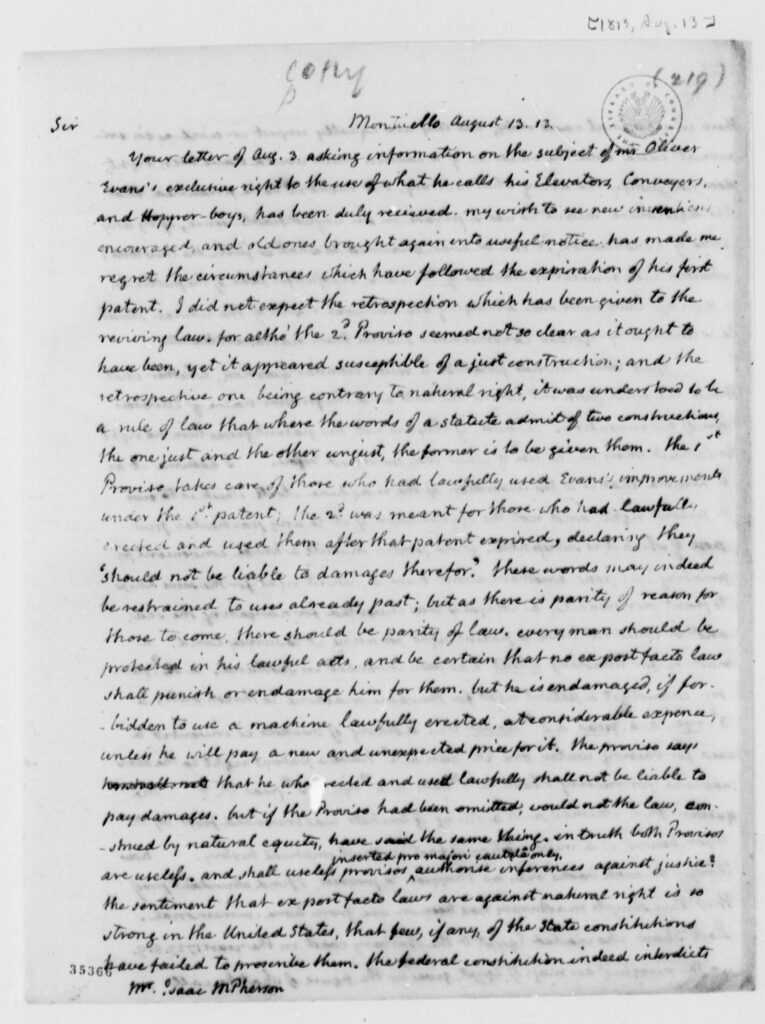 [1813, Aug. 13]
copy
(219)
THE LIBRARY OF CONGRESS
Sir
Monticello August 13. 13.
Your letter of Aug. 3. asking information on the subject of mr Oliver
Evans's exclusive right to the use of what he calls his Elevators, Conveyers,
and Hopper-boys, has been duly recieved. my wish to see new inventions
encouraged, and old ones brought again into useful notice, has made me
regret the circumstances which have followed the expiration of his first
patent. I did not expect the retrospection which has been given to the
reviving law. for altho' the 2d. Proviso seemed not so clear as it ought to
have been, yet it appeared susceptible of a just construction; and the
retrospective one being contrary to natural right, it was understood to be
a rule of law that where the words of a statute admit of two constructions,
the one just and the other unjust, the former is to be given them. the 1st
Proviso takes care of those who had lawfully used Evans's improvements
under the 1st. patent; the 2d. was meant for those who had lawfully
erected and used them after that patent expired, declaring they
'should not be liable to damages therefor.' these words may indeed
be restrained to uses already past; but as there is parity of reason for
those to come, there should be parity of law. every man should be
protected in his lawful acts, and be certain that no ex post facto law
shall punish or endamage him for them. but he is endamaged, if for-
-bidden to use a machine lawfully erected, at considerable expence,
unless he will pay a new and unexpected price for it. the proviso says
that he who erected and used lawfully shall not be liable to
pay damages. but if the Proviso had been omitted, would not the law, con-
-strued by natural equity, have said the same thing. in truth both Provisos
are useless. and shall useless provisos, inserted pro majori cautela only, authorise inferences against justice?
the sentiment that ex post facto laws are against natural right is so
strong in the United States, that few, if any, of the State constitutions
have failed to proscribe them. the federal constitution indeed interdicts
35366
Mr. Isaac McPherson